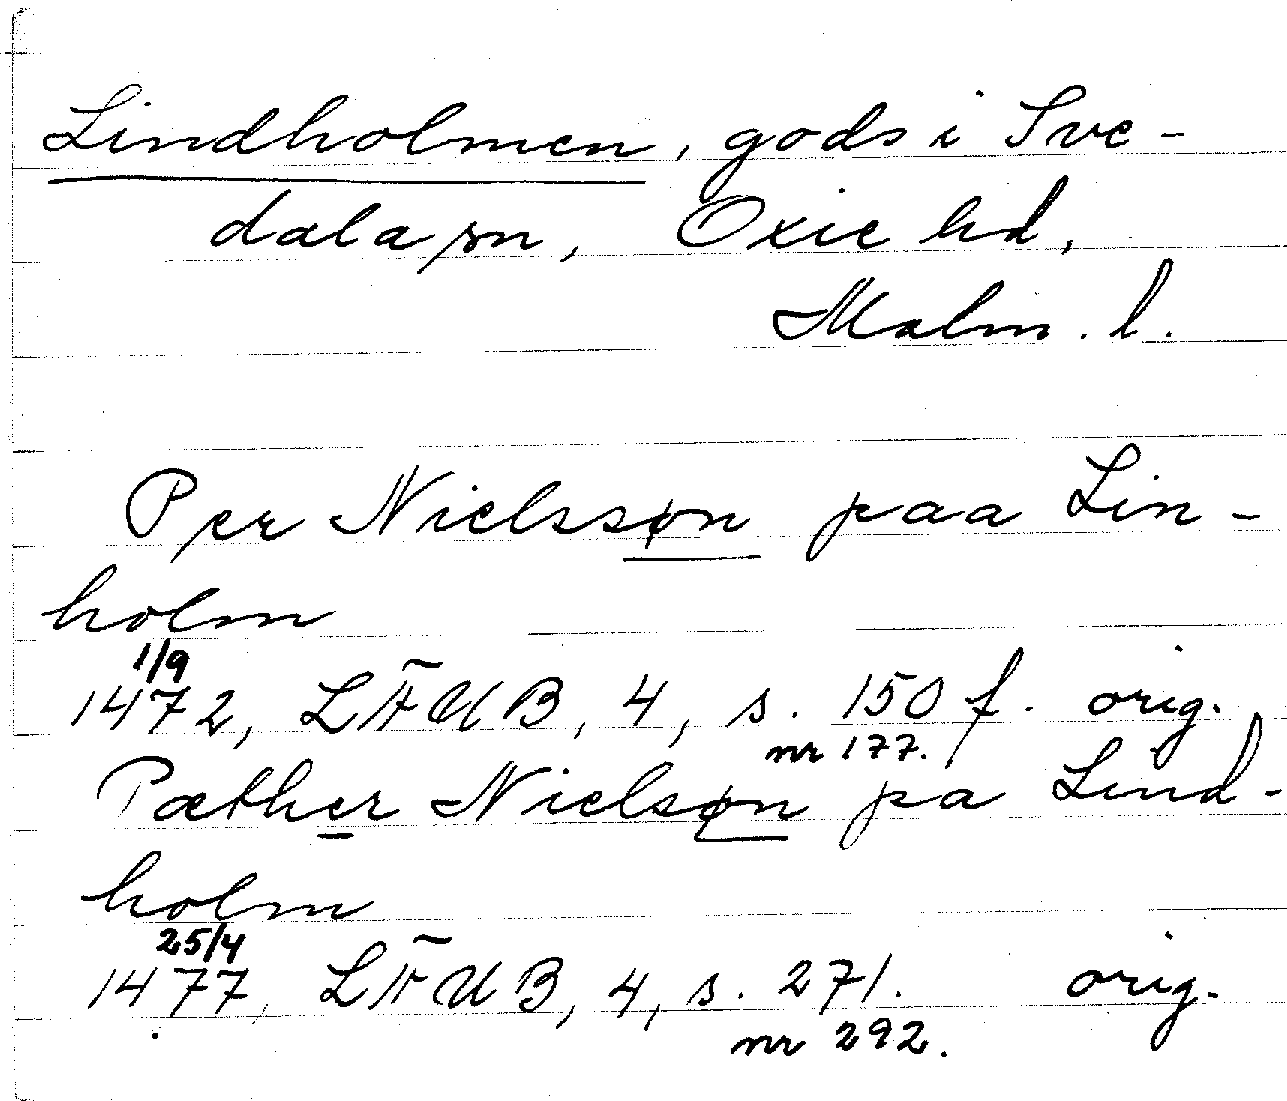 Lindholmen, gods i Sve-
dala sn, Oxie hd,
Malm. l.
Per Nielssøn paa Lin-
holm
1/9
1472, LÄUB, 4, s. 150 f. orig.
nr 177.
Pæther Nielsøn pa Lind-
holm
25/4
1477, LÄUB, 4, s. 271. orig.
nr 292.